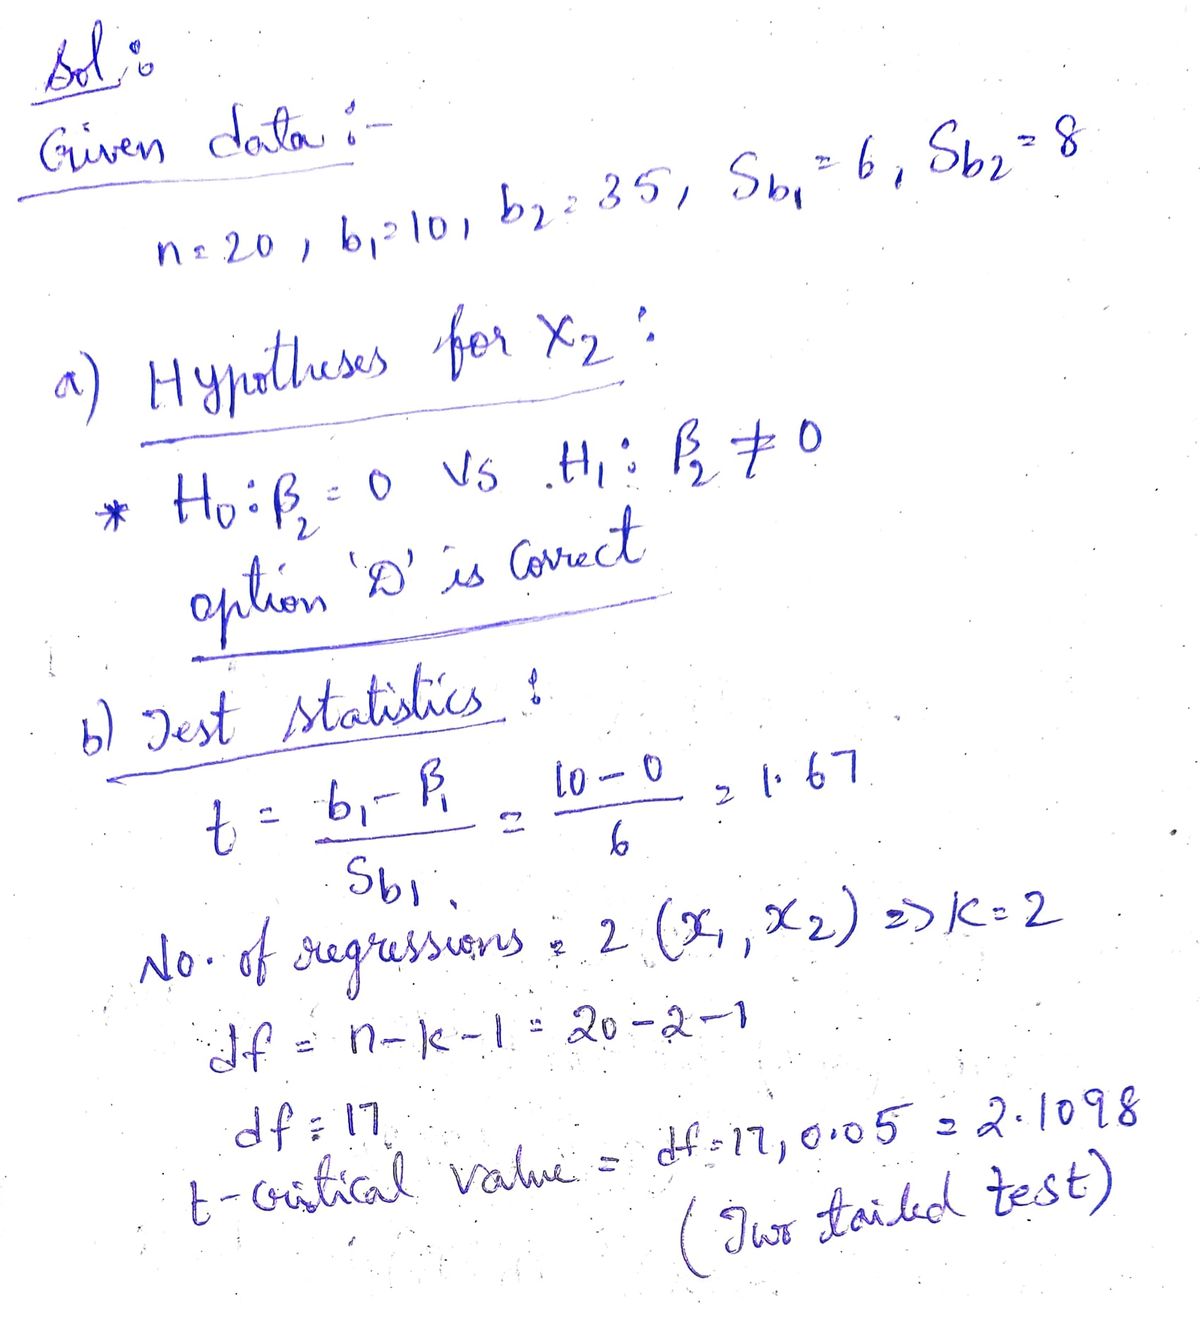 Sol:
Given data :-
n = 20, b₁ = 10, b₂ = 35, Sb₁ = 6, Sb₂ = 8
a) Hypotheses for X₂ :
* H₀ : β₂ = 0 Vs H₁ : β₂ ≠ 0
option 'D' is Correct
b) Test statistics :
t = (b₁ - β₁)/Sb₁ = (10 - 0)/6 = 1.67
No. of regressions = 2 (x₁, x₂) => K = 2
df = n - k - 1 = 20 - 2 - 1
df = 17
t-critical value = df = 17, 0.05 = 2.1098
(Two tailed test)